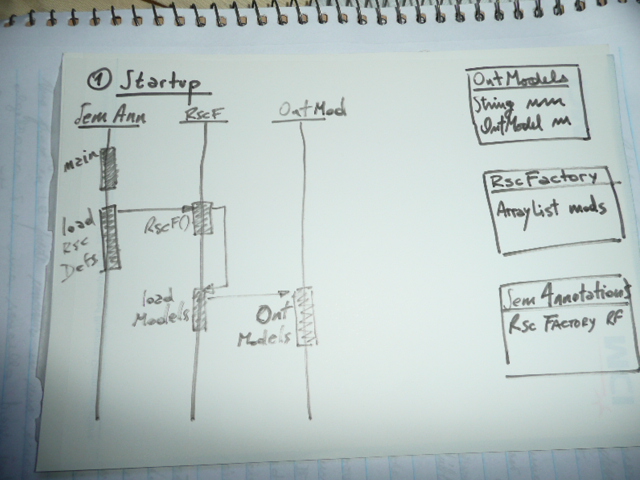 ① Startup
Sem Ann RscF OntMod
main
load
Rsc
Defs
RscF()
load
Models
Ont
Models
OntModels
String
OntModel m
RscFactory
ArrayList mods
Sem Annotations
Rsc Factory RF